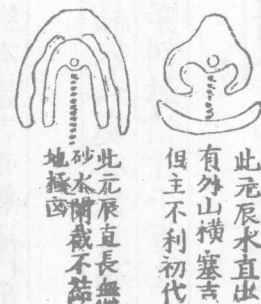 此元辰水直出
有外山橫塞吉
但主不利初代
此元辰直長無攔
砂水闌截不結
地極凶